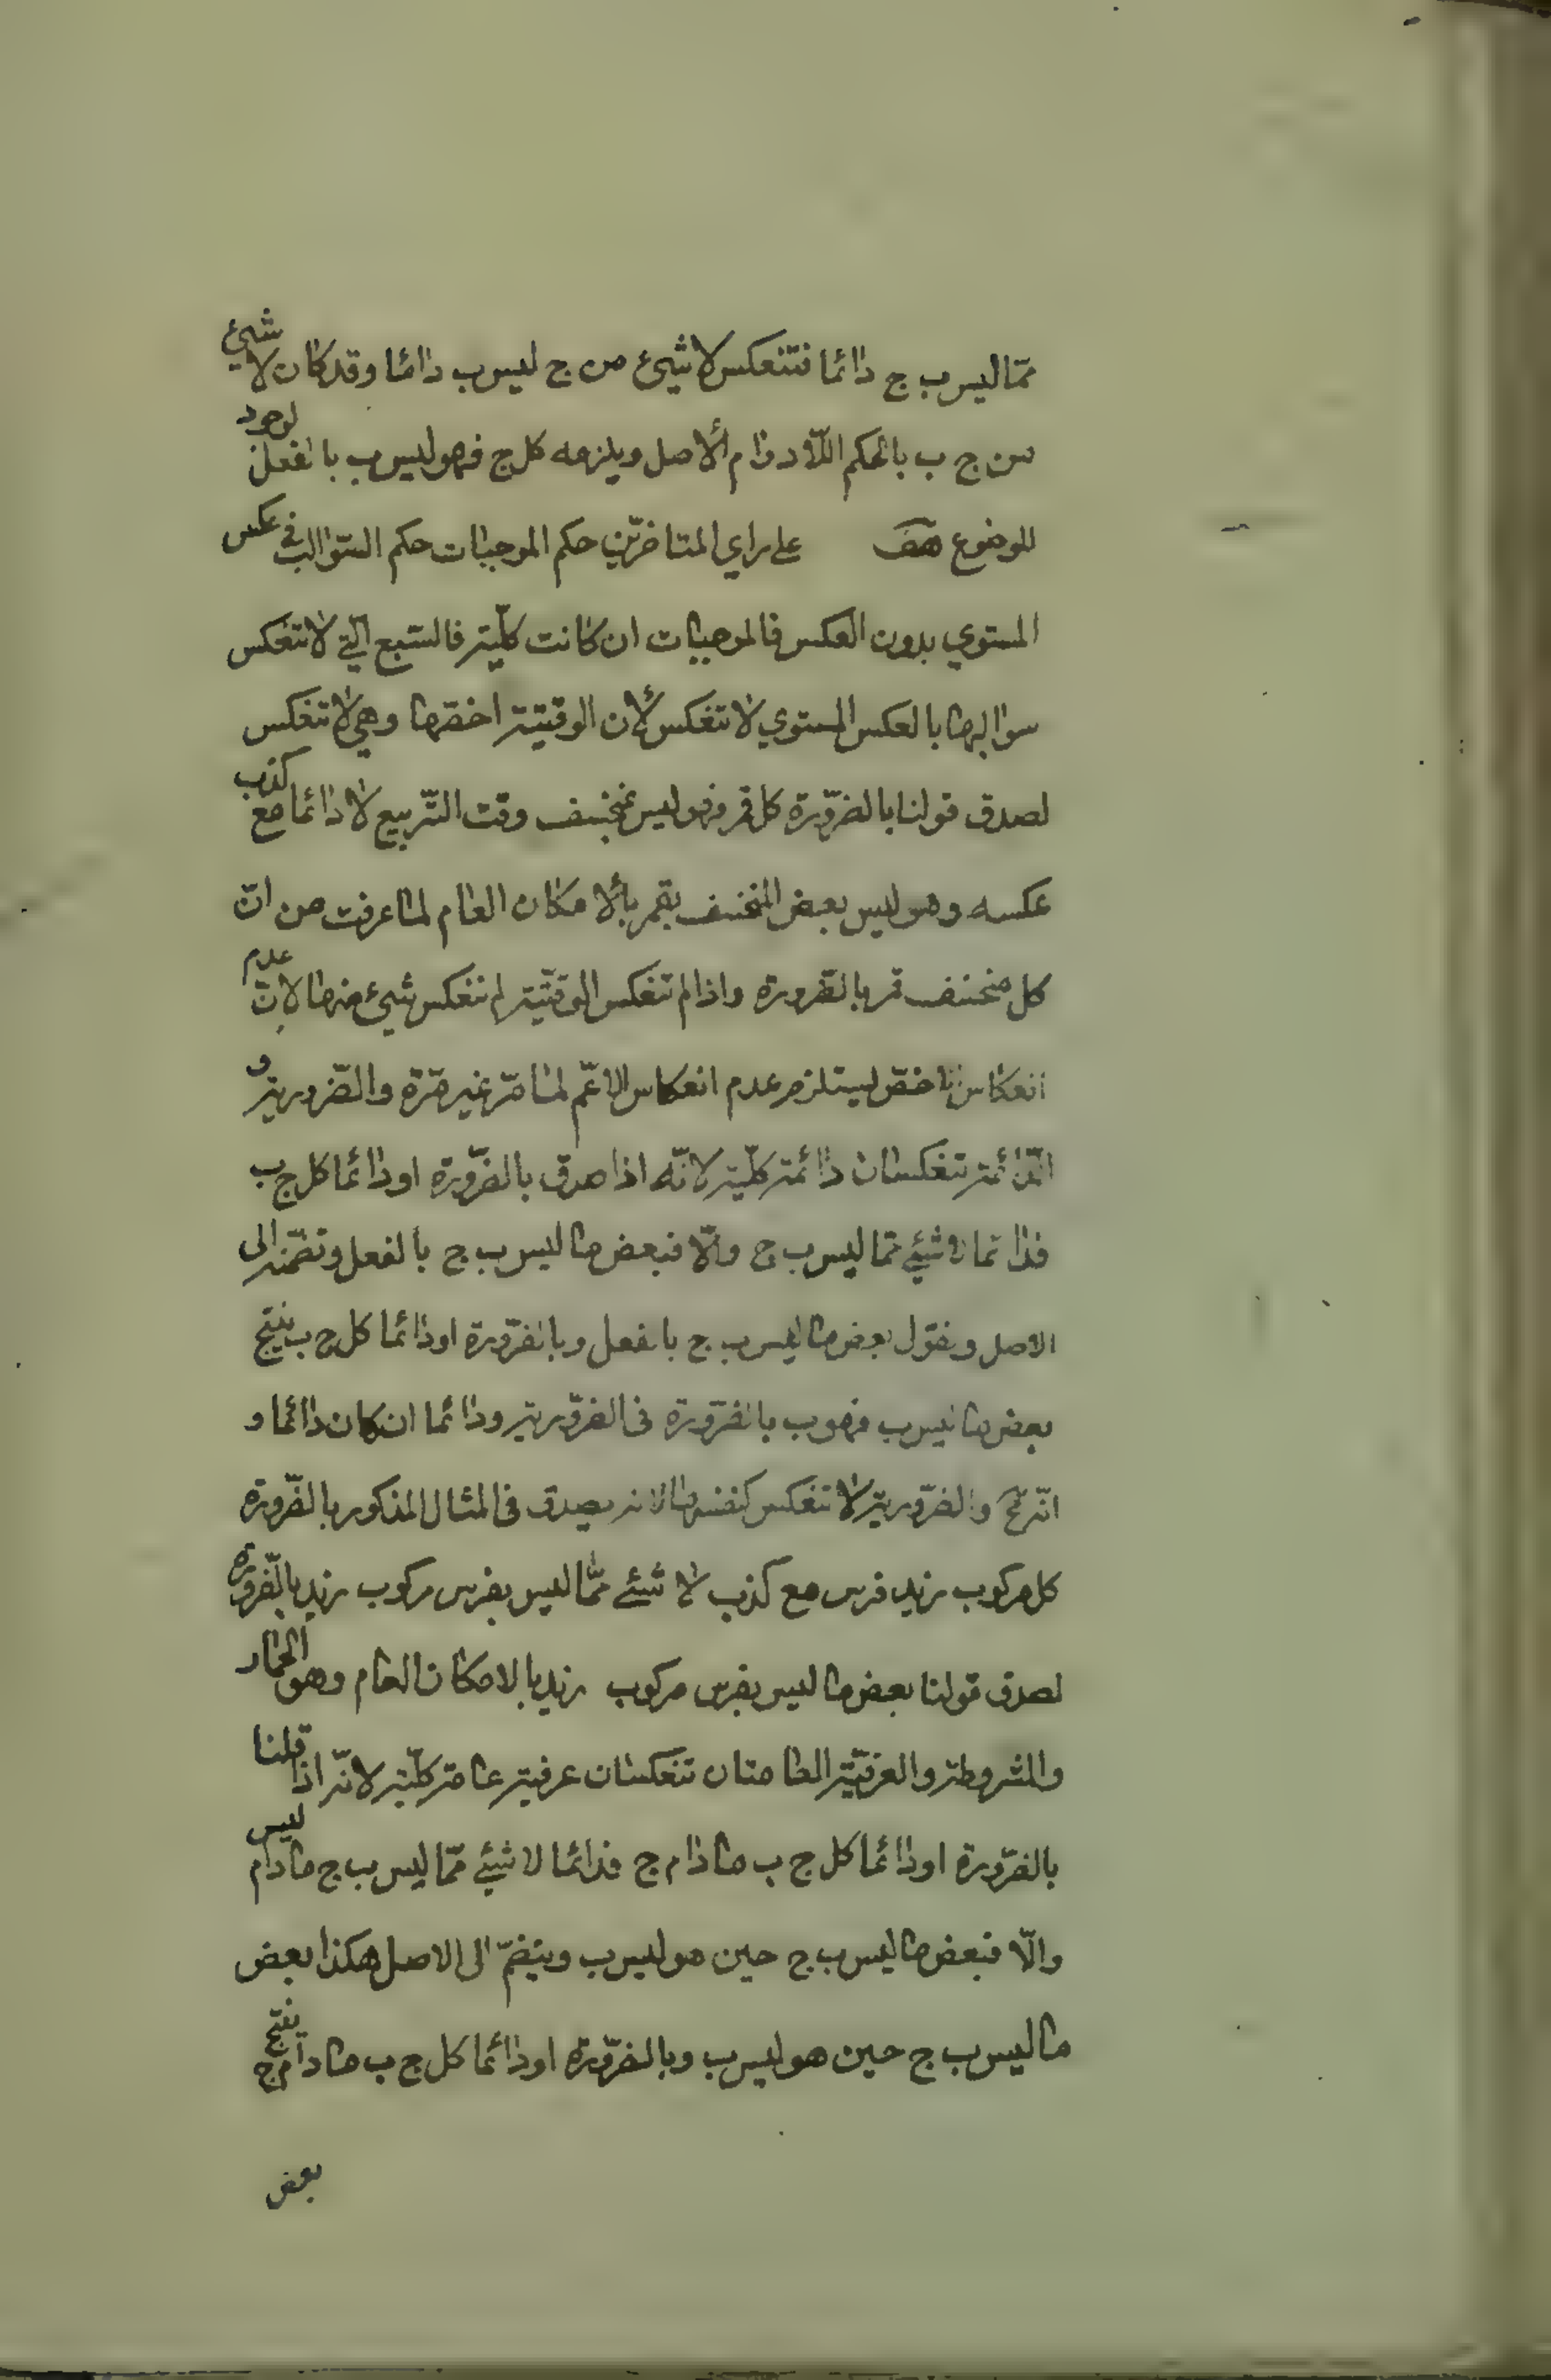 مما ليس ب ج دائما فتنعكس لا شيئ من ج ليس ب دائما وقد كان لا شيئ
من ج ب بالحكم اللادوام الأصل ويلزمه كل ج فهو ليس ب بالفعل لوجود
الموضوع هف على راي المتاخرين حكم الموجبات حكم السوالب في عكس
المستوي بدون العكس فالموجبات ان كانت كلية فالسبع التي لا تنعكس
سوالبها بالعكس المستوي لا تنعكس لأن الوقتية اخصها وهي لا تنعكس
لصدق قولنا بالضرورة كل قمر فهو ليس بمنخسف وقت التربيع لا دائما مع كذب
عكسه وهو ليس بعض المنخسف بقمر بالأمكان العام لما عرفت من ان
كل منخسف قمر بالضرورة واذا لم تنعكس الوقتية لم تنعكس شيئ منها لان عدم
انعكاس الاخص ليستلزم عدم انعكاس الاعم لما مر غير مرة والضرورية و
الدائمة تنعكسان دائمة كلية لانه اذا صدق بالضرورة او دائما كل ج ب
فدائما لا شيئ مما ليس ب ج والا فبعض ما ليس ب ج بالفعل ونضمه الى
الاصل ونقول بعض ما ليس ب ج بالفعل وبالضرورة او دائما كل ج ب ينتج
بعض ما ليس ب فهو ب بالضرورة في الضرورية ودائما ان كان دائما و
انه مح والضرورية لا تنعكس كنفسها لانه يصدق في المثال المذكور بالضرورة
كل مركوب زيد فرس مع كذب لا شئ مما ليس بفرس مركوب زيد بالضرورة
لصدق قولنا بعض ما ليس بفرس مركوب زيد بالامكان العام وهو الحمار
والمشروطة والعرفية العامتان تنعكسان عرفية عامة كلية لانه اذا قلنا
بالضرورة او دائما كل ج ب ما دام ج فدائما لا شئ مما ليس ب ج ما دام ليس
والا فبعض ما ليس ب ج حين هو ليس ب وينضم الى الاصل هكذا بعض
ما ليس ب ج حين هو ليس ب وبالضرورة او دائما كل ج ب ما دام ج ينتج
بعض